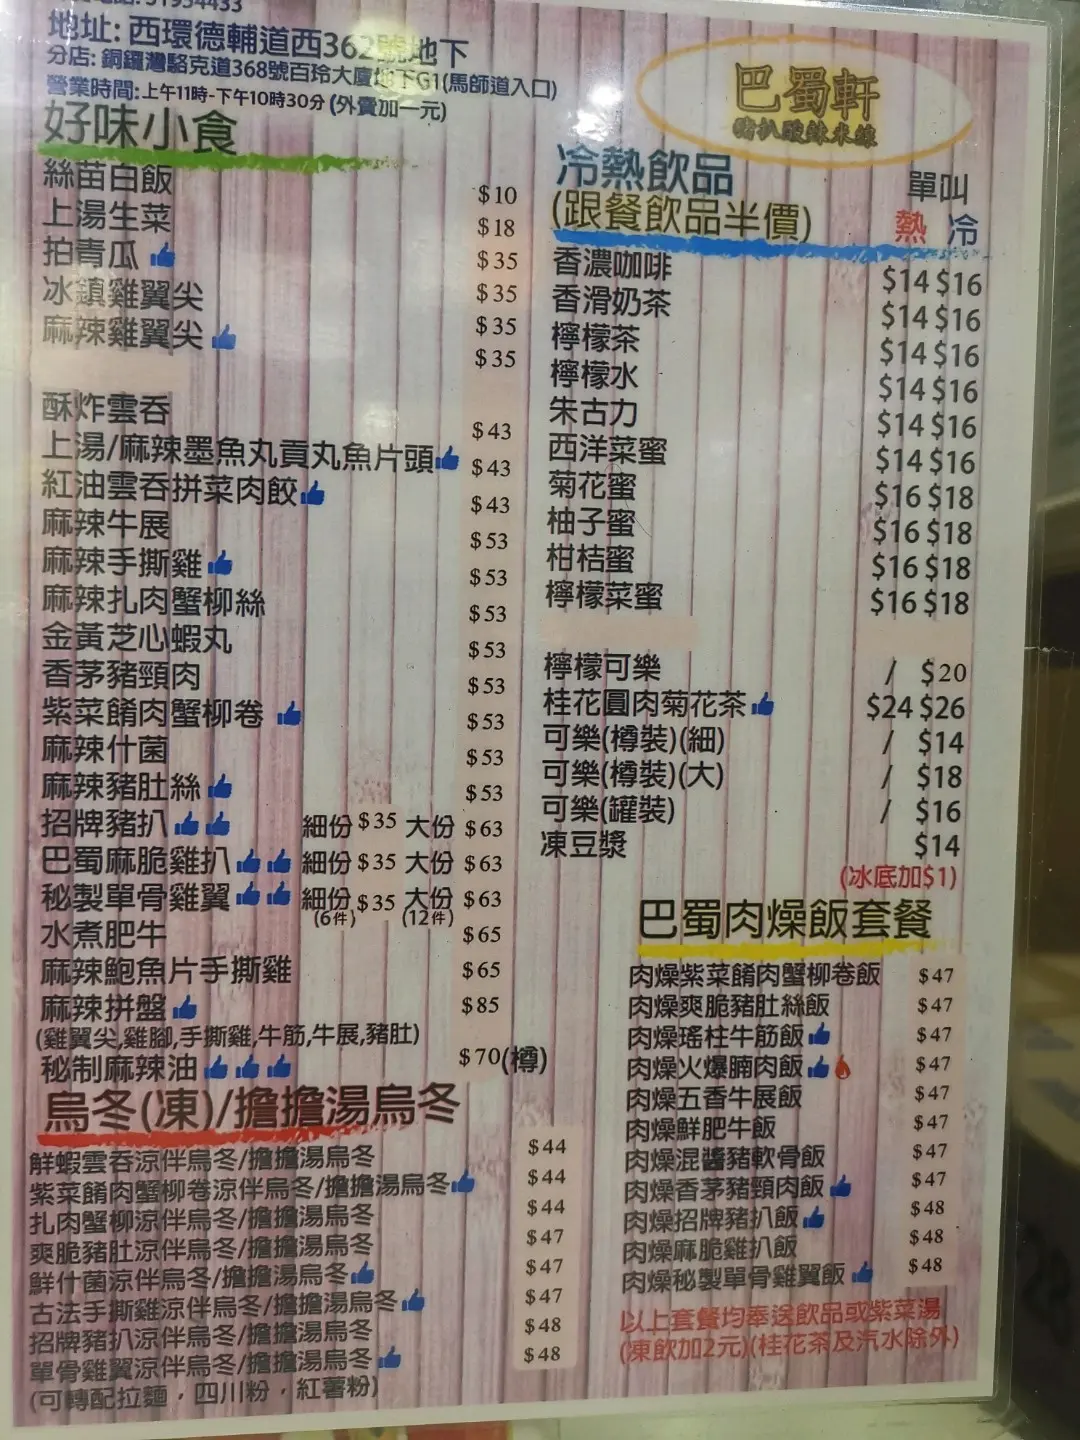 地址: 西環德輔道西362號地下
分店: 銅鑼灣駱克道368號百玲大廈地下G1(馬師道入口)
營業時間:上午11時-下午10時30分 (外賣加一元)
巴蜀軒
豬扒酸辣米線
好味小食
絲苗白飯 $10
上湯生菜 $18
拍青瓜 $35
冰鎮雞翼尖 $35
麻辣雞翼尖 $35
$35
酥炸雲吞 $43
上湯/麻辣墨魚丸貢丸魚片頭 $43
紅油雲吞拼菜肉餃 $43
麻辣牛展 $53
麻辣手撕雞 $53
麻辣扎肉蟹柳絲 $53
金黃芝心蝦丸 $53
香茅豬頸肉 $53
紫菜餚肉蟹柳卷 $53
麻辣什菌 $53
麻辣豬肚絲 $53
招牌豬扒 細份 $35 大份 $63
巴蜀麻脆雞扒 細份 $35 大份 $63
秘製單骨雞翼 細份 $35 大份 $63
(6件) (12件)
水煮肥牛 $65
麻辣鮑魚片手撕雞 $65
麻辣拼盤 $85
(雞翼尖,雞腳,手撕雞,牛筋,牛展,豬肚)
秘制麻辣油 $70(樽)
烏冬(凍)/擔擔湯烏冬
鮮蝦雲吞涼伴烏冬/擔擔湯烏冬 $44
紫菜餚肉蟹柳卷涼伴烏冬/擔擔湯烏冬 $44
扎肉蟹柳涼伴烏冬/擔擔湯烏冬 $44
爽脆豬肚涼伴烏冬/擔擔湯烏冬 $47
鮮什菌涼伴烏冬/擔擔湯烏冬 $47
古法手撕雞涼伴烏冬/擔擔湯烏冬 $47
招牌豬扒涼伴烏冬/擔擔湯烏冬 $48
單骨雞翼涼伴烏冬/擔擔湯烏冬 $48
(可轉配拉麵，四川粉，紅薯粉)
冷熱飲品 單叫
(跟餐飲品半價) 熱 冷
香濃咖啡 $14 $16
香滑奶茶 $14 $16
檸檬茶 $14 $16
檸檬水 $14 $16
朱古力 $14 $16
西洋菜蜜 $14 $16
菊花蜜 $16 $18
柚子蜜 $16 $18
柑桔蜜 $16 $18
檸檬菜蜜 $16 $18
檸檬可樂 / $20
桂花圓肉菊花茶 $24 $26
可樂(樽裝)(細) / $14
可樂(樽裝)(大) / $18
可樂(罐裝) / $16
凍豆漿 $14
(冰底加$1)
巴蜀肉燥飯套餐
肉燥紫菜餚肉蟹柳卷飯 $47
肉燥爽脆豬肚絲飯 $47
肉燥瑤柱牛筋飯 $47
肉燥火爆腩肉飯 $47
肉燥五香牛展飯 $47
肉燥鮮肥牛飯 $47
肉燥混醬豬軟骨飯 $47
肉燥香茅豬頸肉飯 $47
肉燥招牌豬扒飯 $48
肉燥麻脆雞扒飯 $48
肉燥秘製單骨雞翼飯 $48
以上套餐均奉送飲品或紫菜湯
(凍飲加2元)(桂花茶及汽水除外)